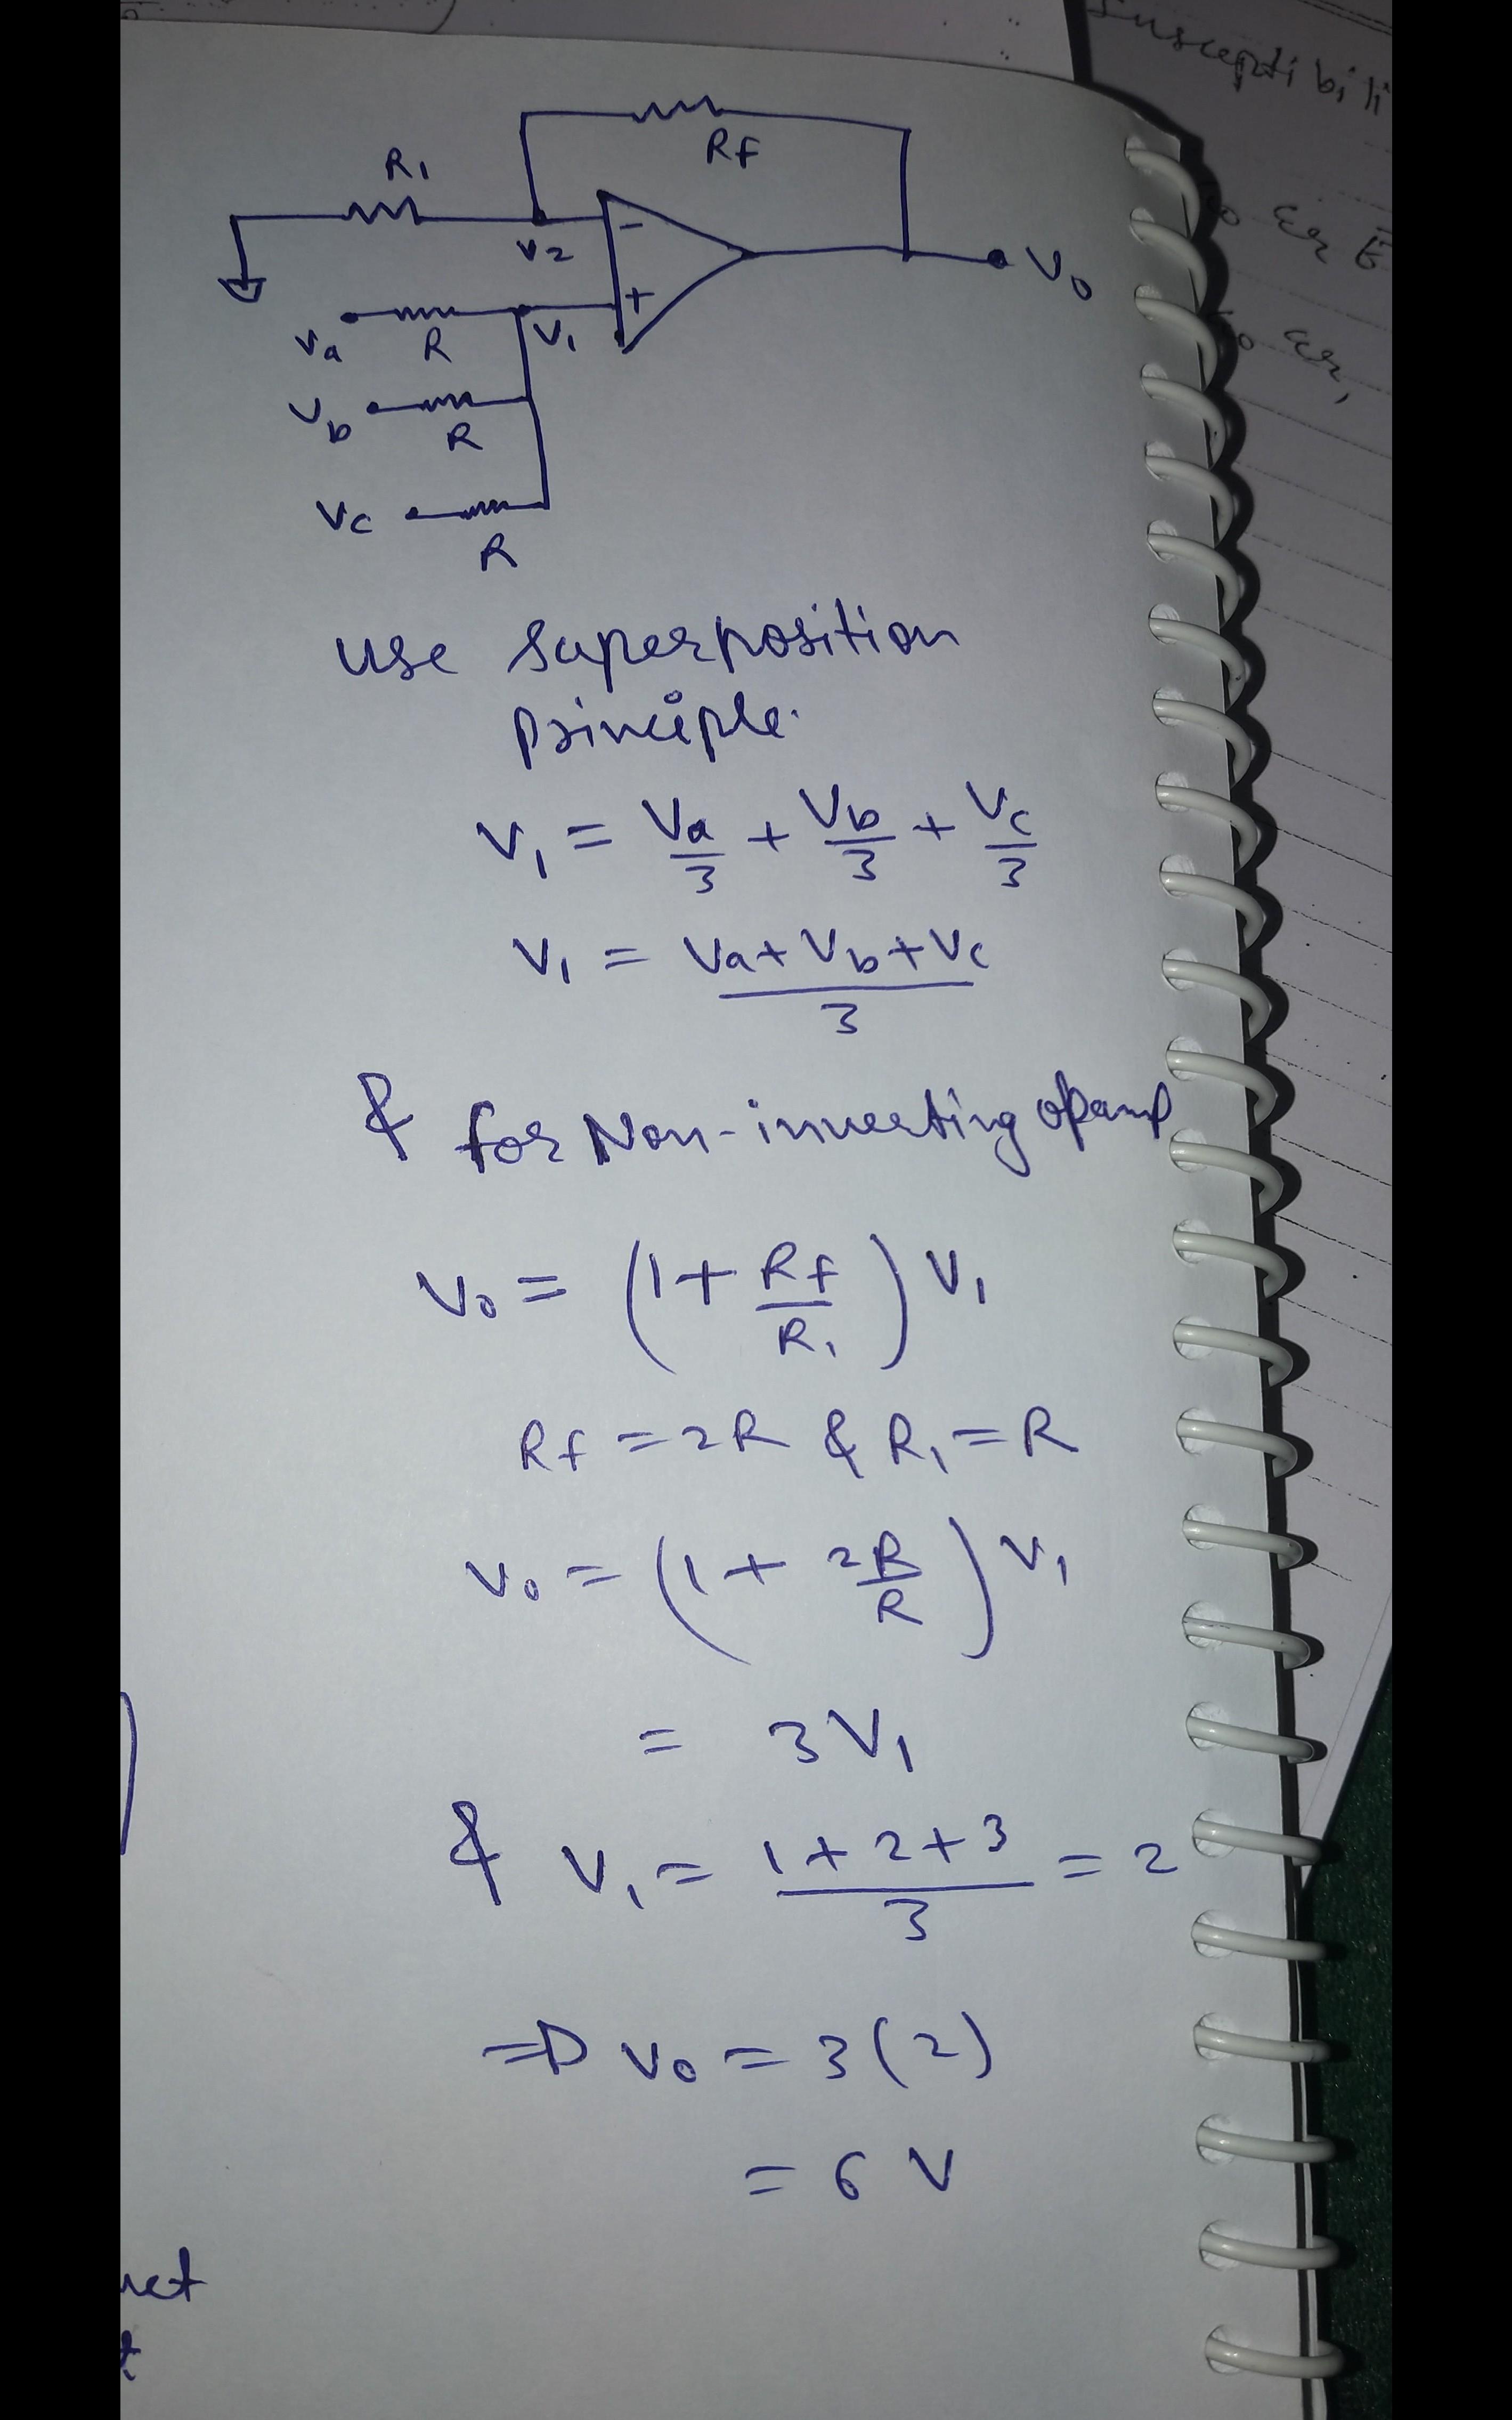 Rf
R1
V2
-
+
V0
Va
R
V1
Vb
R
Vc
R
use superposition
principle.
V1 = Va/3 + Vb/3 + Vc/3
V1 = Va+Vb+Vc/3
& for Non-inverting opamp
V0 = (1 + Rf/R1) V1
Rf = 2R & R1 = R
V0 = (1 + 2R/R) V1
= 3V1
& V1 = 1+2+3/3 = 2
=> V0 = 3(2)
= 6 V